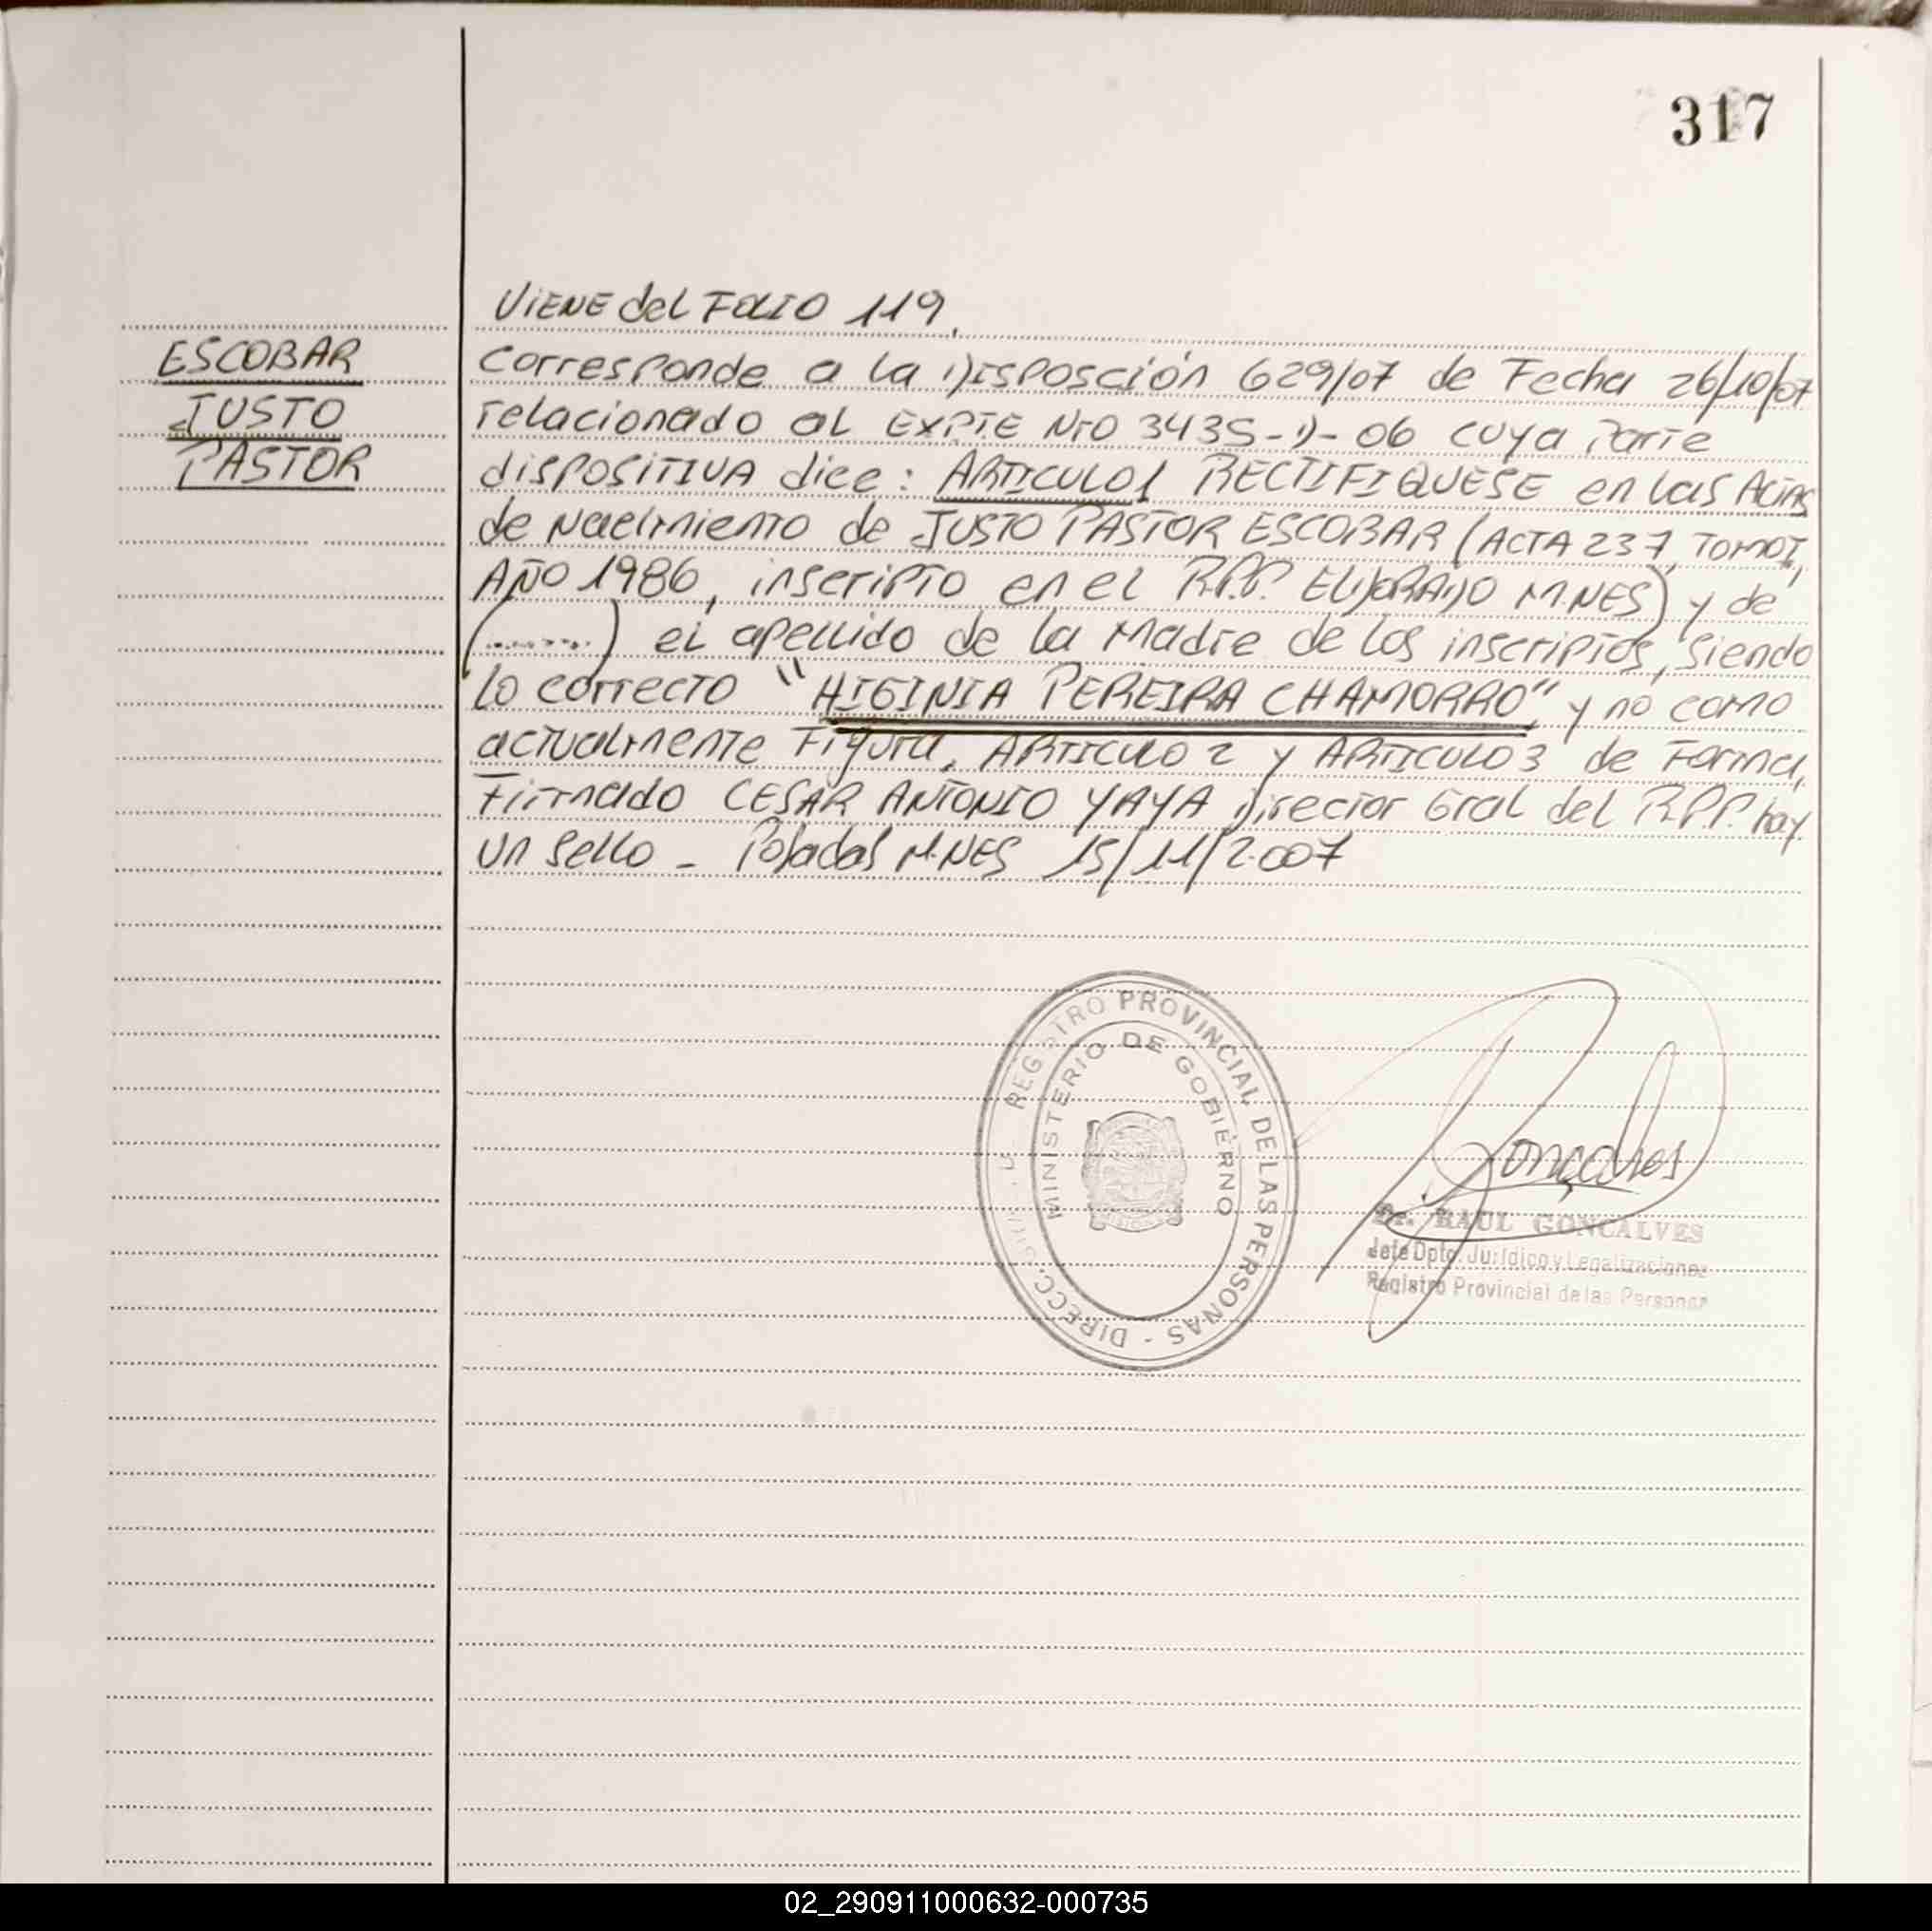 317
VIENE del FOLIO 119.
ESCOBAR
JUSTO
PASTOR
Corresponde a la Disposción 629/07 de Fecha 26/10/07
relacionado al EXPTE Nro 3435-D-06 cuya Parte
dispositiva dice: ARTICULO1 RECTIFIQUESE en las Actas
de Nacimiento de JUSTO PASTOR ESCOBAR (ACTA 237, TOMO I,
AÑO 1986, inscripto en el R.P.P. ELDORADO M.NES) y de
(.........) el apellido de la Madre de los inscriptos, siendo
lo correcto "HIGINIA PEREIRA CHAMORRO" y no como
actualmente Figura. ARTICULO 2 y ARTICULO 3 de Forma.
Firmado CESAR ANTONIO YAYA Director Gral del R.P.P. hay
un sello - Posadas M.NES 15/11/2.007
REGISTRO PROVINCIAL DE LAS PERSONAS - DIRECC.
MINISTERIO DE GOBIERNO
Gonçalves
Dr. RAUL GONCALVES
Jefe Dpto. Jurídico y Legalizaciones
Registro Provincial de las Personas
02_290911000632-000735